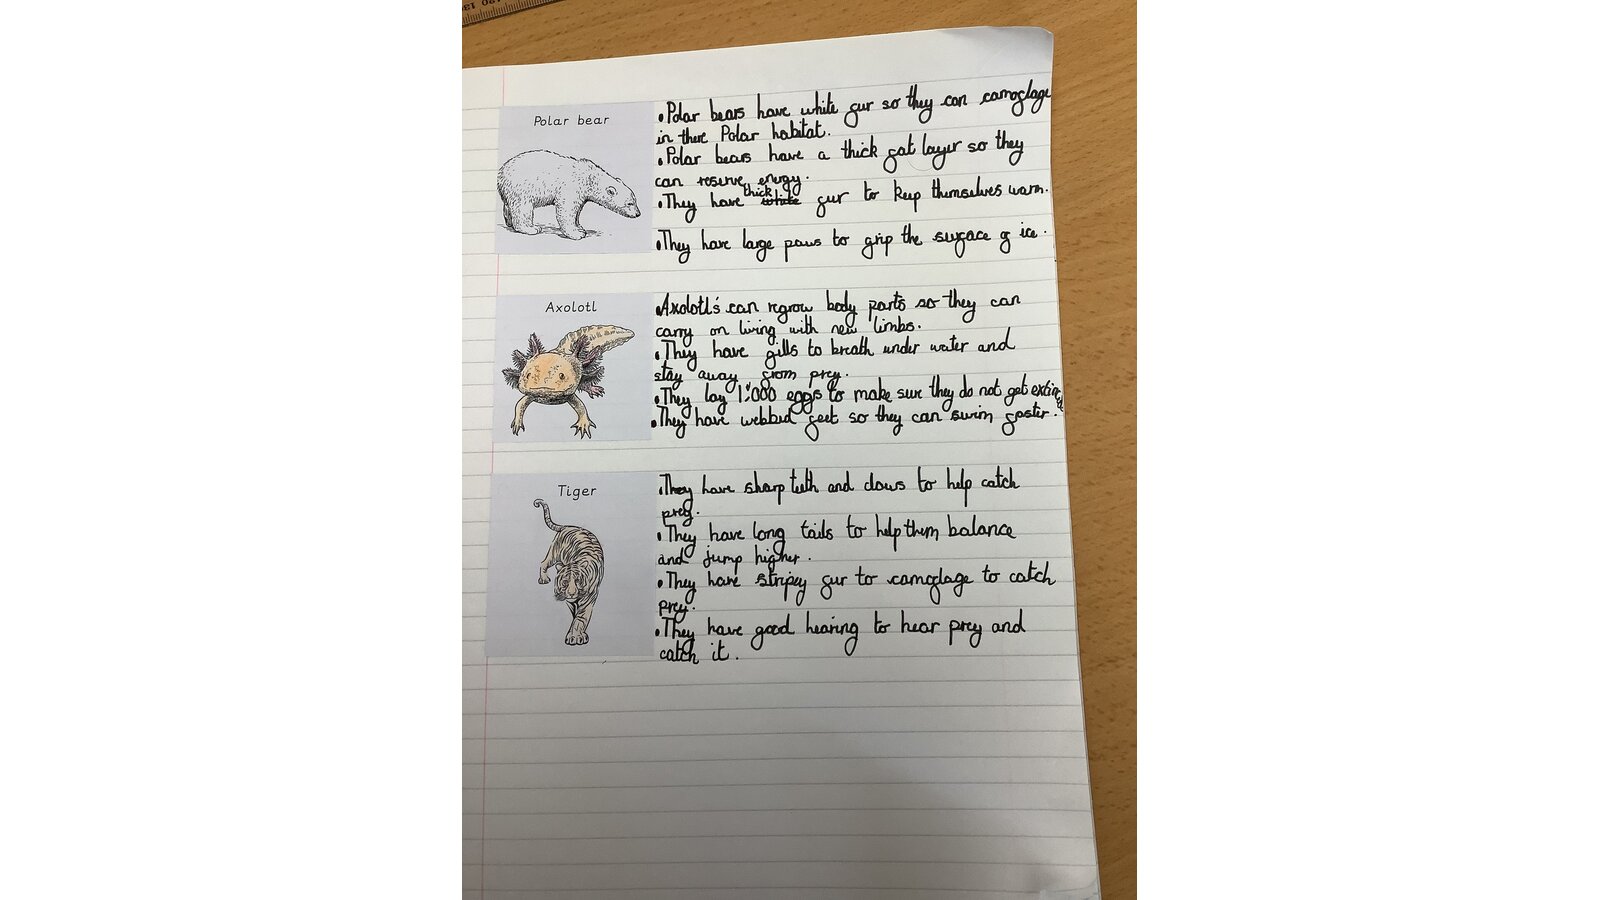 Polar bear
•Polar bears have white fur so they can camoflage
in there Polar habitat.
•Polar bears have a thick fat layer so they
can reserve energy.
•They have thick white fur to keep themselves warm.
•They have large paws to grip the surface of ice.
Axolotl
•Axolotl's can regrow body parts so they can
carry on living with new limbs.
•They have gills to breath under water and
stay away from prey.
•They lay 1:000 eggs to make sure they do not get extinct
•They have webbed feet so they can swim faster.
Tiger
•They have sharp teeth and claws to help catch
prey.
•They have long tails to help them balance
and jump higher.
•They have stripey fur to camoflage to catch
prey.
•They have good hearing to hear prey and
catch it.